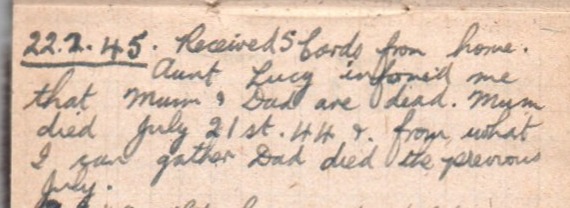 22.2.45. Received 5 Cards from home.
Aunt Lucy informed me
that Mum & Dad are dead. Mum
died July 21st. 44 &. from what
I can gather Dad died the previous
July.